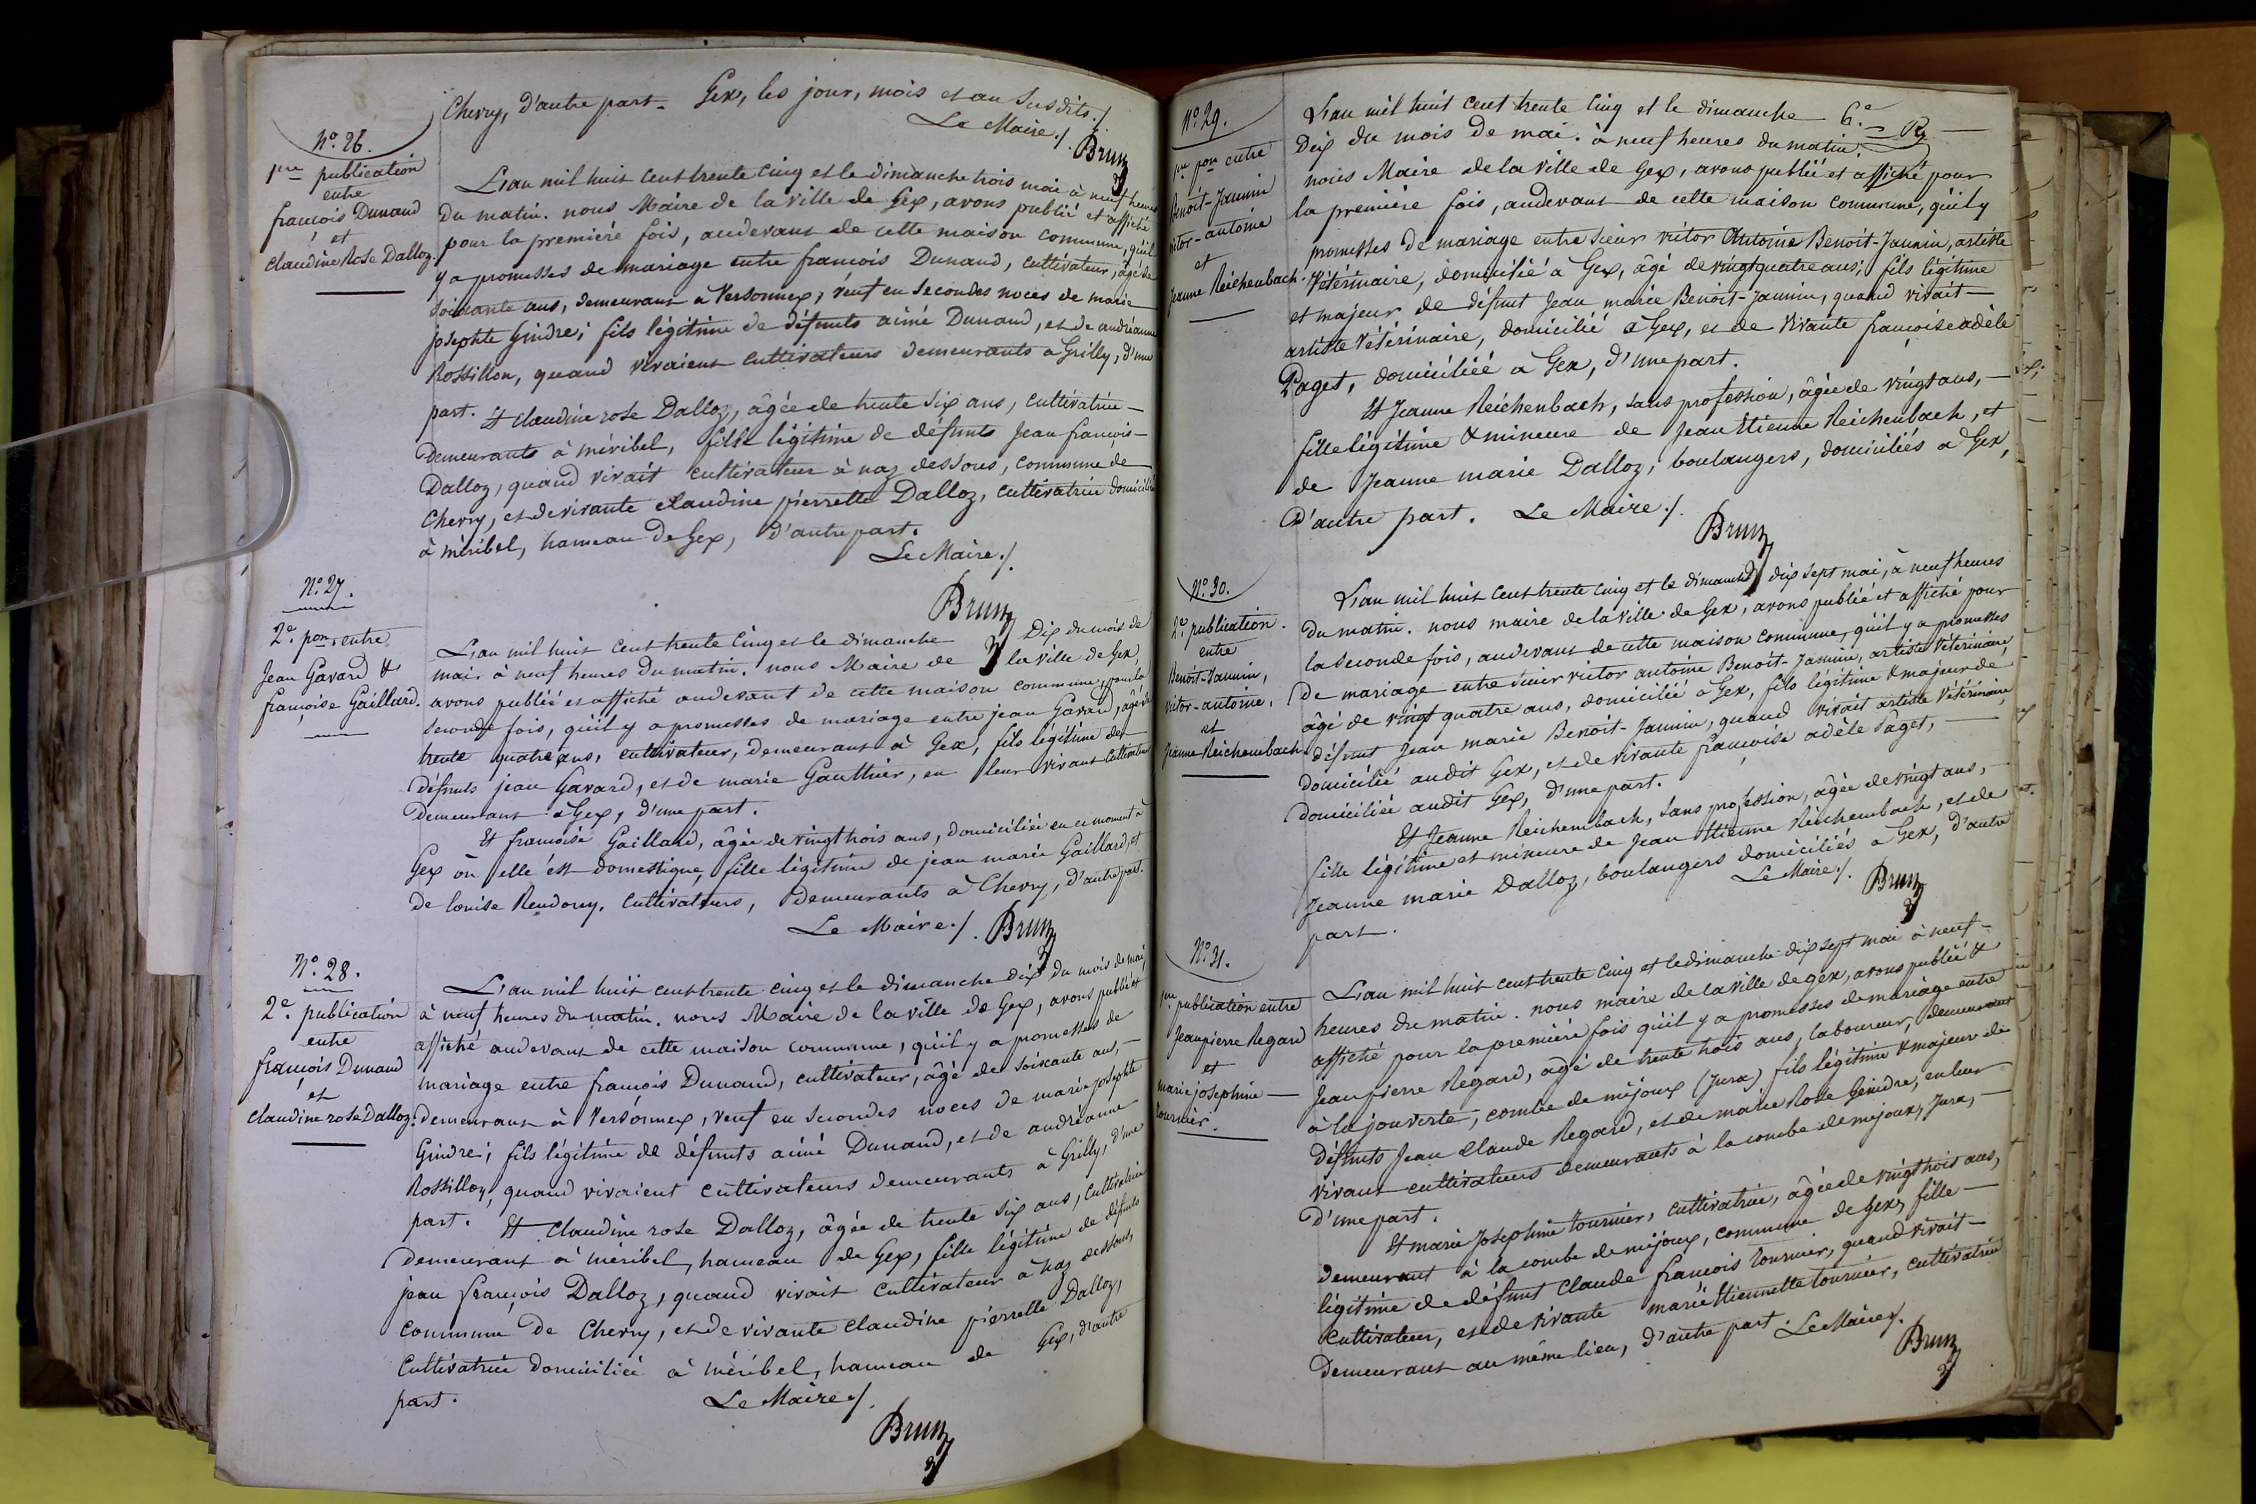 Chevry, d'autre part. Gex, les jour, mois et an susdits./.
Le Maire./.
Brun
N.º 26.
1ere publication
entre
françois Dunand
et
Claudine Rose Dalloz.
L'an mil huit cent trente cinq et le dimanche trois mai à neuf heures
du matin. nous Maire de la ville de Gex, avons publié et affiché
pour la première fois, audevant de cette maison commune, qu'il
y a promesses de mariage entre françois Dunand, cultivateur, âgé de
soixante ans, demeurant à Versonnex, veuf en secondes noces de marie
josephte Gindre; fils légitime de défunts aimé Dunand, et de andréanne
Rossillon, quand vivaient cultivateurs demeurants à Grilly, d'une
part. Et claudine rose Dalloz, âgée de trente six ans, cultivatrice
demeurante à méribel, fille légitime de défunts Jean françois
Dalloz, quand vivait cultivateur à naz dessous, commune de
Chevry, et de vivante claudine pierrette Dalloz, cultivatrice domiciliée
à méribel, hameau de Gex, d'autre part.
Le Maire./.
Brun
N.º 27.
2.e pon entre
Jean Gavard &
françoise Gaillard.
L'an mil huit cent trente cinq et le dimanche Dix du mois de
mai à neuf heures du matin. nous Maire de la ville de Gex,
avons publié et affiché audevant de cette maison commune, pour la
seconde fois, qu'il y a promesses de mariage entre jean Gavard, âgé de
trente quatre ans, cultivateur, demeurant à Gex, fils légitime de
défunts jean Gavard, et de marie Gauthier, en leur vivant cultivateurs
demeurant à Gex, d'une part.
Et françoise Gaillard, âgée de vingt trois ans, domiciliée en ce moment à
Gex où elle est domestique, fille légitime de jean marie Gaillard, et
de louise, cultivateurs, demeurants à Chevry, d'autre part.
Le Maire./. Brun
N.º 28.
2.e publication
entre
françois Dunand
et
claudine rose Dalloz.
L'an mil huit cent trente cinq et le dimanche dix du mois de mai,
à neuf heures du matin. nous Maire de la ville de Gex, avons publié et
affiché audevant de cette maison commune, qu'il y a promesses de
mariage entre françois Dunand, cultivateur, âgé de soixante ans,
demeurant à Versonnex, veuf en secondes noces de marie josephte
Gindre; fils légitime de défunts aimé Dunand, et de andréanne
Rossillon, quand vivaient cultivateurs demeurants à Grilly, d'une
part. Et Claudine rose Dalloz, âgée de trente six ans, cultivatrice
demeurant à méribel, hameau de Gex, fille légitime de défunts
jean françois Dalloz, quand vivait cultivateur à naz dessous,
commune de Chevry, et de vivante claudine pierrette Dalloz,
cultivatrice domiciliée à méribel, hameau de Gex, d'autre
part. Le Maire./.
Brun
N.º 29.
1re pon entre
Benoit-Jannin
victor-antoine
et
Jeanne Reichenbach.
L'an mil huit cent trente cinq et le dimanche 6.e
Dix du mois de mai. à neuf heures du matin.
nous Maire de la ville de Gex, avons publié et affiché pour
la première fois, audevant de cette maison commune, qu'il y
promesses de mariage entre sieur victor Antoine Benoit-Jannin, artiste
vétérinaire, domicilié à Gex, âgé de vingt quatre ans; fils légitime
et majeur de défunt Jean marie Benoit-Jannin, quand vivait
artiste vétérinaire, domicilié à Gex, et de vivante françoise adèle
Paget, domiciliée à Gex, d'une part.
Et Jeanne Reichenbach, sans profession, âgée de vingt ans,
fille légitime & mineure de Jean Etienne Reichenbach, et
de Jeanne marie Dalloz, boulangers, domiciliés à Gex,
d'autre part. Le Maire./.
Brun
N.º 30.
2.e publication
entre
Benoit-Jannin,
victor-antoine,
et
Jeanne Reichembach
L'an mil huit cent trente cinq et le dimanche dix sept mai, à neuf heures
du matin. nous maire de la ville de Gex, avons publié et affiché pour
la seconde fois, audevant de cette maison commune, qu'il y a promesses
de mariage entre sieur victor antoine Benoit-Jannin, artiste vétérinaire,
âgé de vingt quatre ans, domicilié à Gex, fils légitime & majeur de
défunt Jean marie Benoit-Jannin, quand vivait artiste vétérinaire,
domicilié audit Gex, et de vivante françoise adèle Paget,
domiciliée audit Gex, d'une part.
Et Jeanne Reichembach, sans profession, âgée de vingt ans,
fille légitime et mineure de Jean Etienne Reichembach, et de
Jeanne marie Dalloz, boulangers domiciliés à Gex, d'autre
part. Le Maire./. Brun
N.º 31.
1re publication entre
Jean pierre Regard
et
marie josephine
Tournier.
L'an mil huit cent trente cinq et le dimanche dix sept mai à neuf
heures du matin. nous maire de la ville de gex, avons publié &
affiché pour la première fois qu'il y a promesses de mariage entre
Jean pierre Regard, âgé de trente trois ans, laboureur, demeurant
à lajouverte, combe de mijoux (Jura) fils légitime & majeur de
défunts Jean Claude Regard, et de marie Rose Geindre, en leur
vivant cultivateurs demeurants à la combe de mijoux, Jura,
d'une part.
Et marie Josephine Tournier, cultivatrice, âgée de vingt trois ans,
demeurant à la combe de mijoux, commune de Gex, fille
légitime de défunt Claude françois Tournier, quand vivait
cultivateur, et de vivante marie Etiennette tournier, cultivatrice
demeurant au même lieu, d'autre part. Le Maire./.
Brun